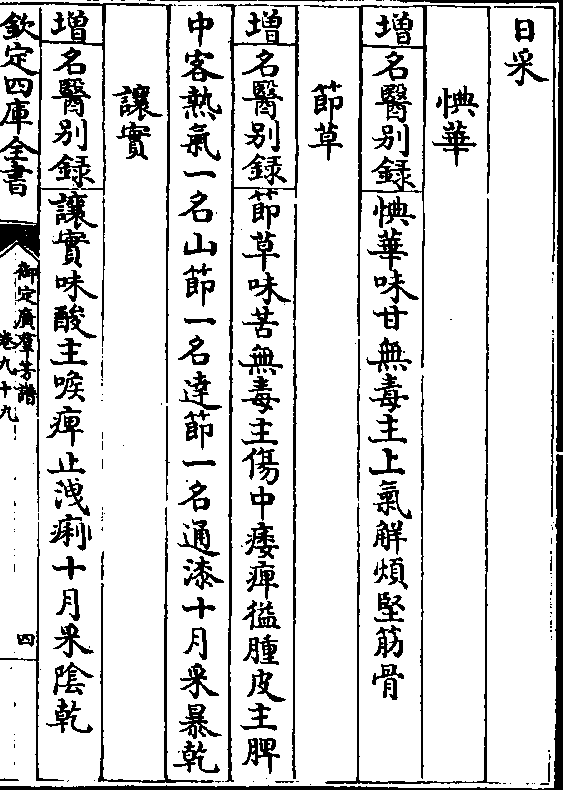 日采
㥏華
增名醫别録㥏華味甘無毒主上氣解煩堅筋骨
節草
增名醫别録節草味苦無毒主傷中痿痺㵝腫皮主脾
中客熱氣一名山節一名達節一名通漆十月采暴乾
讓實
增名醫别録讓實味酸主喉痺止洩痢十月采陰乾
欽定四庫全書
御定廣羣芳譜
卷九十九
四